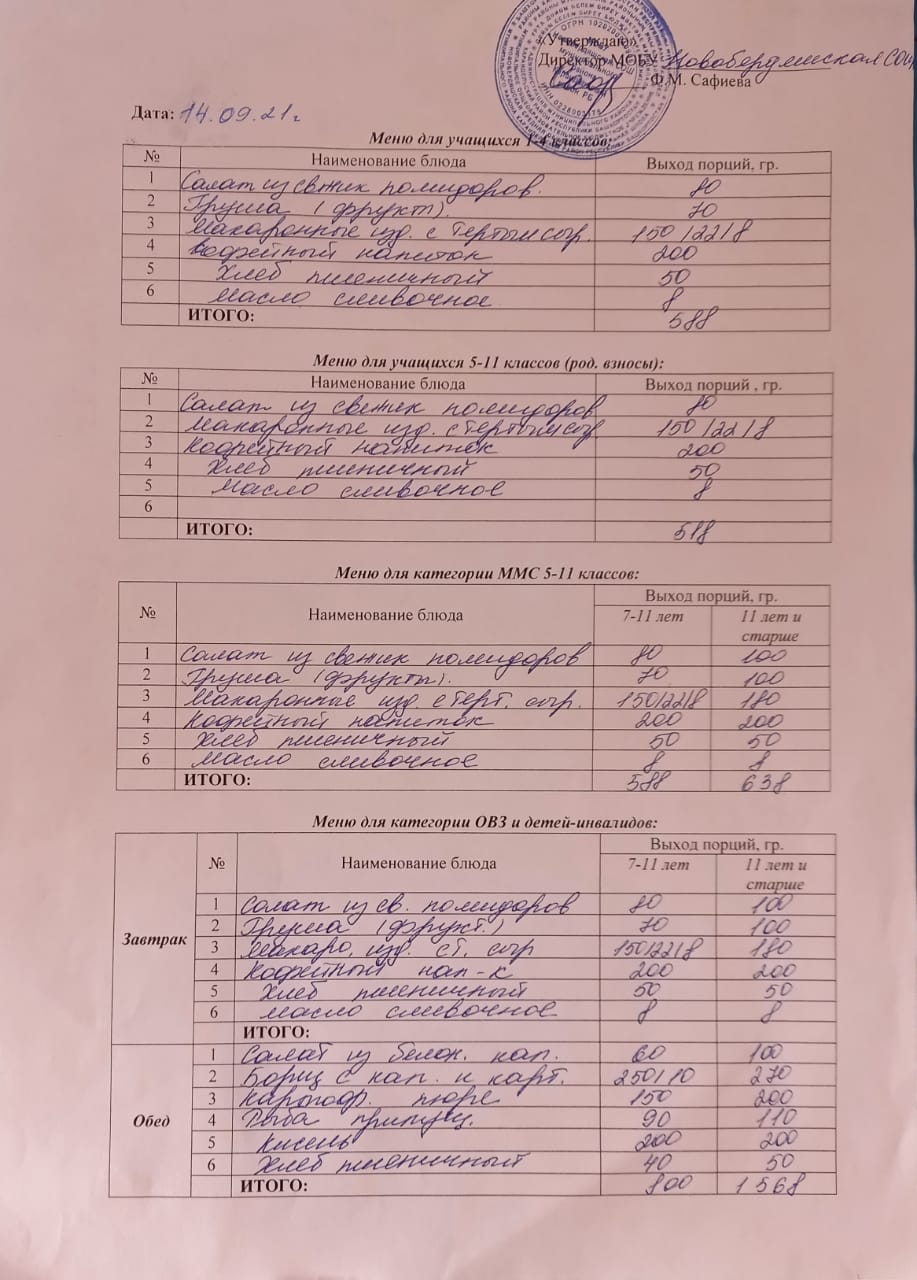 «Утверждаю»
Директор МОБУ Новобердяшская СОШ
Ф.М. Сафиева
Дата: 14.09.21г
Меню для учащихся 1-4 классов:
№ Наименование блюда Выход порций, гр.
1 Салат из свежих помидоров. 80
2 Груша (фрукты). 70
3 Макаронные изд. с тертым сыр. 150/22/8
4 Кофейный напиток 200
5 Хлеб пшеничный 50
6 Масло сливочное 8
ИТОГО: 588
Меню для учащихся 5-11 классов (род. взносы):
№ Наименование блюда Выход порций , гр.
1 Салат из свежих помидоров 80
2 Макаронные изд. с тертым сыр 150/22/8
3 Кофейный напиток 200
4 Хлеб пшеничный 50
5 Масло сливочное 8
6
ИТОГО: 518
Меню для категории ММС 5-11 классов:
№ Наименование блюда Выход порций, гр.
7-11 лет 11 лет и старше
1 Салат из свежих помидоров 80 100
2 Груша (фрукты). 70 100
3 Макаронные изд. с терт. сыр. 150/22/8 180
4 Кофейный напиток 200 200
5 Хлеб пшеничный 50 50
6 Масло сливочное 8 8
ИТОГО: 588 638
Меню для категории ОВЗ и детей-инвалидов:
№ Наименование блюда Выход порций, гр.
7-11 лет 11 лет и старше
Завтрак
1 Салат из св. помидоров 80 100
2 Груша (фрукт.) 70 100
3 Макаро. изд. с т. сыр 150/22/8 180
4 Кофейный нап-к 200 200
5 Хлеб пшеничный 50 50
6 Масло сливочное 8 8
ИТОГО:
Обед
1 Салат из белок. кап. 60 100
2 Борщ с кап. и карт. 250/10 270
3 Картоф. пюре 150 200
4 Рыба припущ. 90 110
5 Кисель 200 200
6 Хлеб пшеничный 40 50
ИТОГО: 800 1568